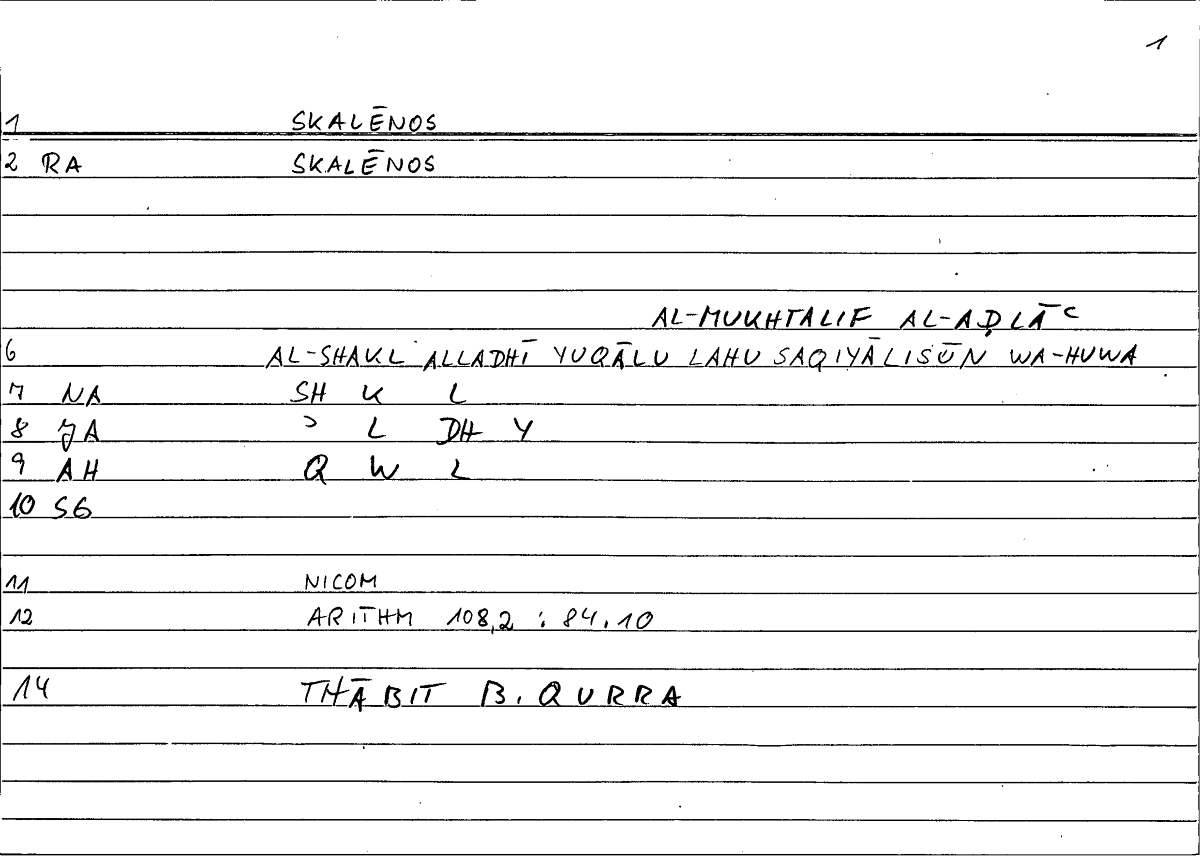 1
1 SKALĒNOS
2 RA SKALĒNOS
AL-MUKHTALIF AL-AḌLĀʿ
6 AL-SHAKL ALLADHĪ YUQĀLU LAHU SAQIYĀLISŪN WA-HUWA
7 NA SH K L
8 JA ʾ L DH Y
9 AH Q W L
10 SG
11 NICOM
12 ARITHM 108,2 : 84.10
14 THĀBIT B. QURRA